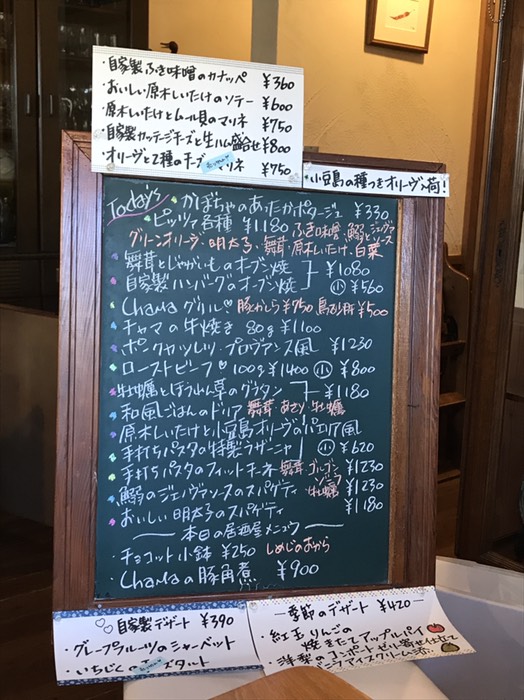 ・自家製ふき味噌のカナッペ ¥360
・おいしい原木しいたけのソテー ¥600
・原木しいたけとムール貝のマリネ ¥750
・自家製カッテージチーズと生ハム盛合せ ¥800
・オリーヴと2種のチーズ マリネ ¥750
・小豆島の種つきオリーヴ入荷!
Today's
・かぼちゃのあったかポタージュ ¥330
・ピッツァ各種 ¥1180 ふき味噌・鰯とジェノヴァソース
グリーンオリーブ・明太子・舞茸・原木しいたけ・白菜
・舞茸とじゃがいものオーブン焼 ¥1080
・自家製ハンバーグのオーブン焼 小 ¥560
・Chamaグリル♡ 豚かしら¥750 鳥砂肝¥500
・チャマの牛焼き 80g ¥1100
・ポークカツレツ・プロヴァンス風 ¥1230
・ローストビーフ♡ 100g ¥1400 小 ¥800
・牡蠣とほうれん草のグラタン ¥1180
・和風ごはんのドリア 舞茸・あさり・牡蠣
・原木しいたけと小豆島オリーヴのパエリア風
・手打ちパスタの特製ラザーニャ 小 ¥620
・手打ちパスタのフィットチーネ 舞茸ゴルゴンゾーラ ¥1230
・鰯のジェノヴァソースのスパゲティ 牡蠣 ¥1230
・おいしい明太子のスパゲティ ¥1180
本日の居酒屋メニュウ
・チョコット小鉢 ¥250 しめじのおから
・Chamaの豚角煮 ¥900
♡♡自家製デザート ¥390
・グレープフルーツのシャーベット
・いちじくの タルト
季節のデザート ¥420
・紅玉りんごの
焼きたてアップルパイ
・洋梨のコンポート ゼル寄せ仕立て
アイスクリーム添え